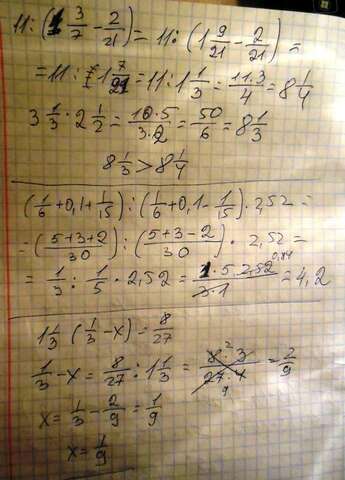 11 : (1 3/7 - 2/21) = 11 : (1 9/21 - 2/21) =
= 11 : 1 7/21 = 11 : 1 1/3 = 11·3/4 = 8 1/4
3 1/3 · 2 1/2 = 10·5/3·2 = 50/6 = 8 1/3
8 1/3 > 8 1/4
(1/6 + 0,1 + 1/15) : (1/6 + 0,1 - 1/15) · 2,52 =
= (5+3+2/30) : (5+3-2/30) · 2,52 =
= 1/3 : 1/5 · 2,52 = 1·5·2,52 0,84/3·1 = 4,2
1 1/3 (1/3 - x) = 8/27
1/3 - x = 8/27 : 1 1/3 = 8 2·3/27 9·4 = 2/9
x = 1/3 - 2/9 = 1/9
x = 1/9